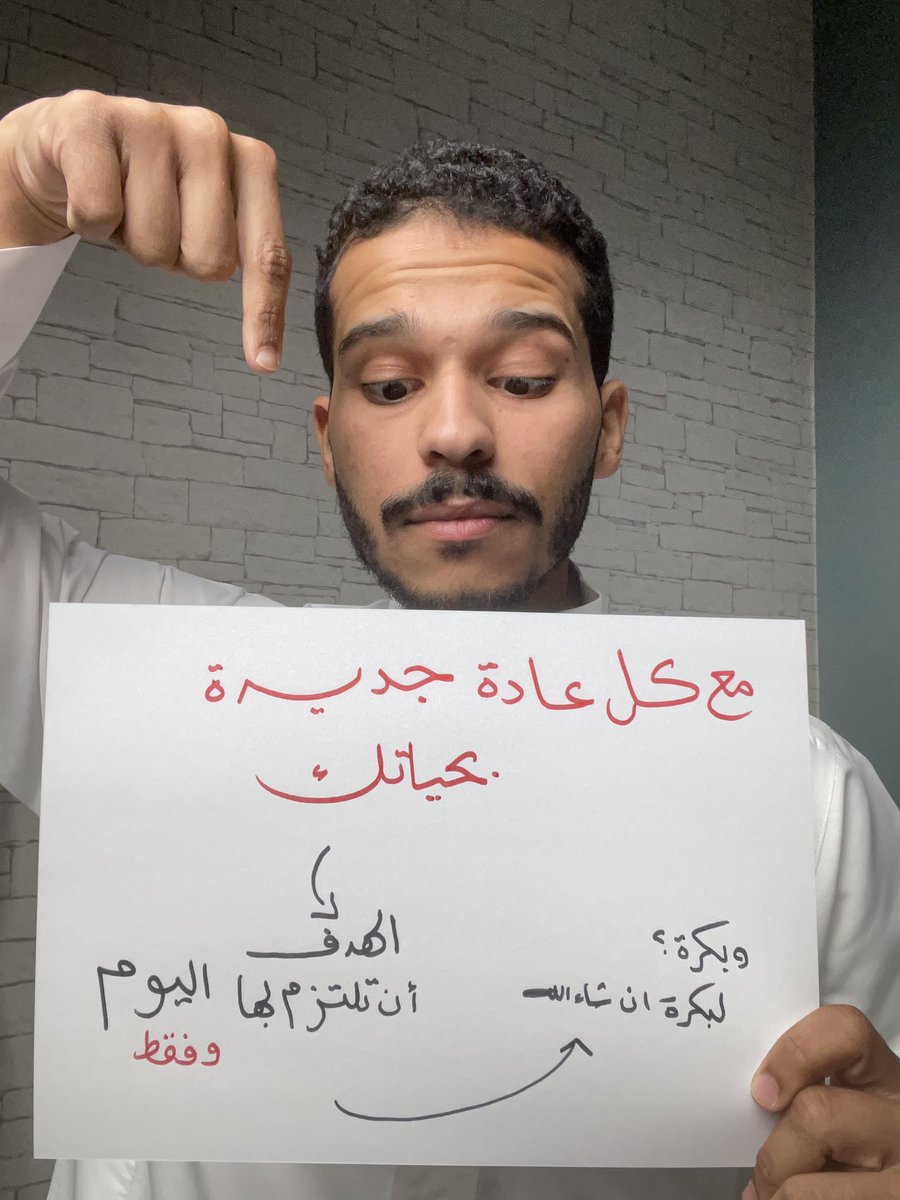 مع كل عادة جديدة
بحياتك
الهدف
أن تلتزم بها اليوم
وفقط
وبكرة؟
لبكرة ان شاء الله